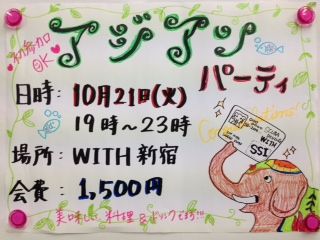 初参加
OK
アジアン
パーティ
日時：10月21日(火)
19時～23時
場所：WITH新宿
会費：1,500円
ISS
美味しい料理&ドリンクでます!!!